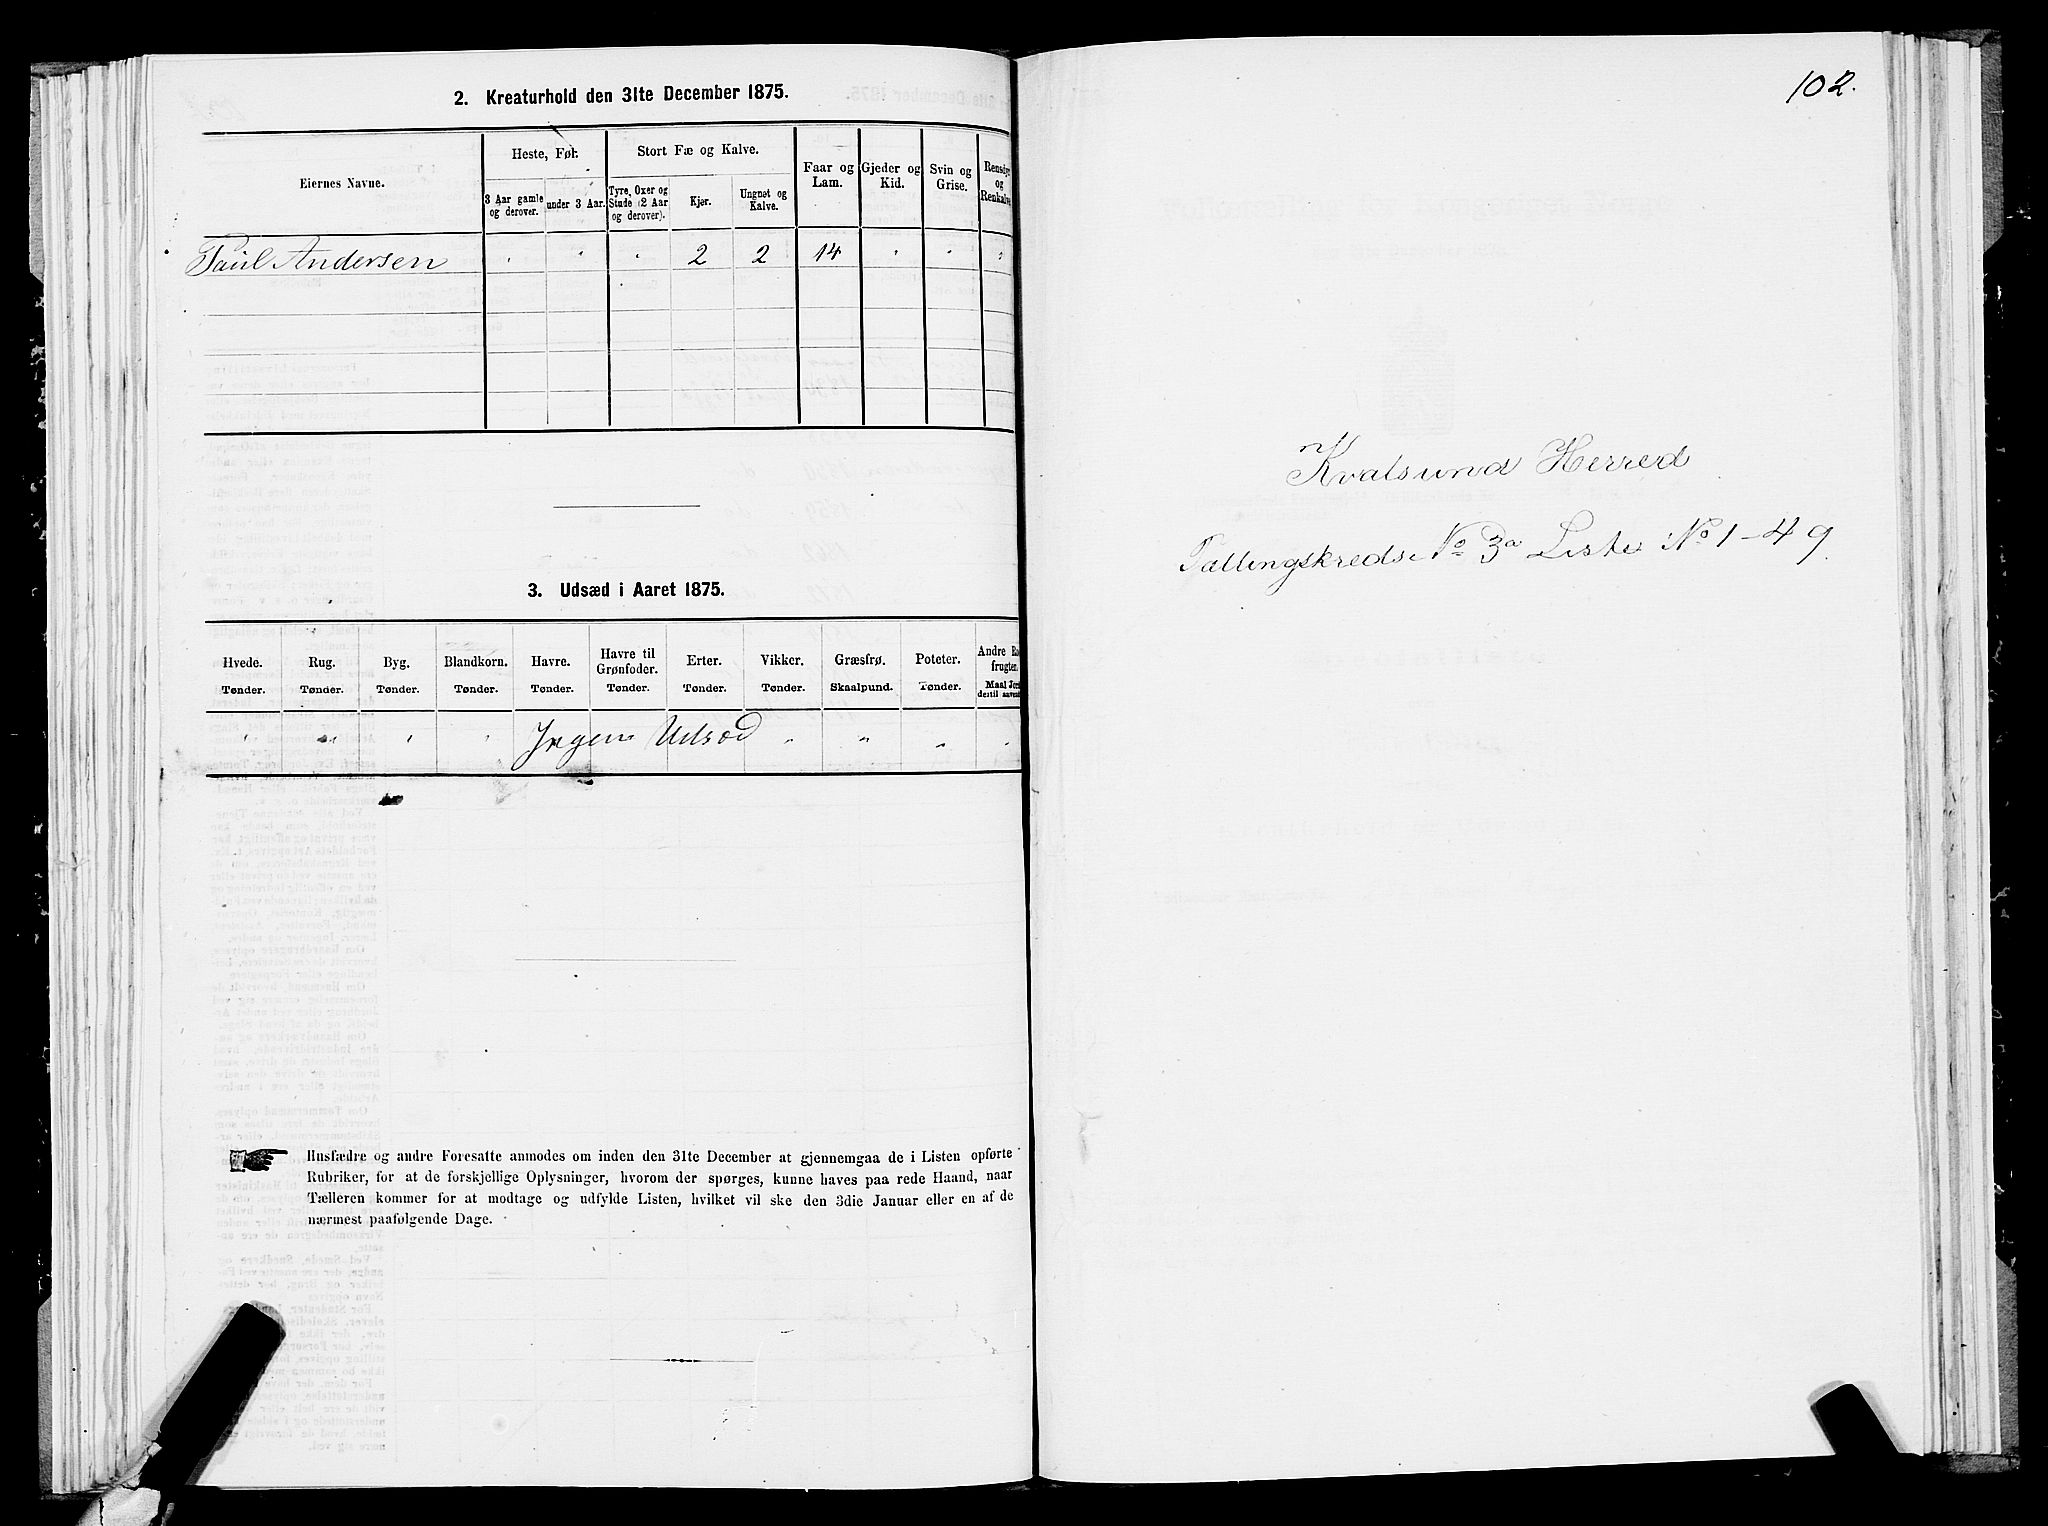 2. Kreaturhold den 31te December 1875.
Eiernes Navne.
Heste, Føl.
Stort Fæ og Kalve.
Faar og Lam.
Gjeder og Kid.
Svin og Grise.
Rensdyr og Renkalve
3 Aar gamle og derover.
under 3 Aar.
Tyre, Oxer og Stude (2 Aar og derover).
Kjør.
Ungnøt og Kalve.
Paul Andersen " " " 2 2 14 " " "
3. Udsæd i Aaret 1875.
Hvede. Rug. Byg. Blandkorn. Havre. Havre til Grønfoder. Erter. Vikker. Græsfrø. Poteter. Andre Rodfrugter.
Tønder. Tønder. Tønder. Tønder. Tønder. Tønder. Tønder. Tønder. Skaalpund. Tønder. Maal Jord
" " " " Ingen Udsæd " " " "
Husfædre og andre Foresatte anmodes om inden den 31te December at gjennemgaa de i Listen opførte
Rubriker, for at de forskjellige Oplysninger, hvorom der spørges, kunne haves paa rede Haand, naar
Tælleren kommer for at modtage og udfylde Listen, hvilket vil ske den 3die Januar eller en af de
nærmest paafølgende Dage.
102.
Kvalsund Herred
Tællingskreds No 3a Liste No 1-49.